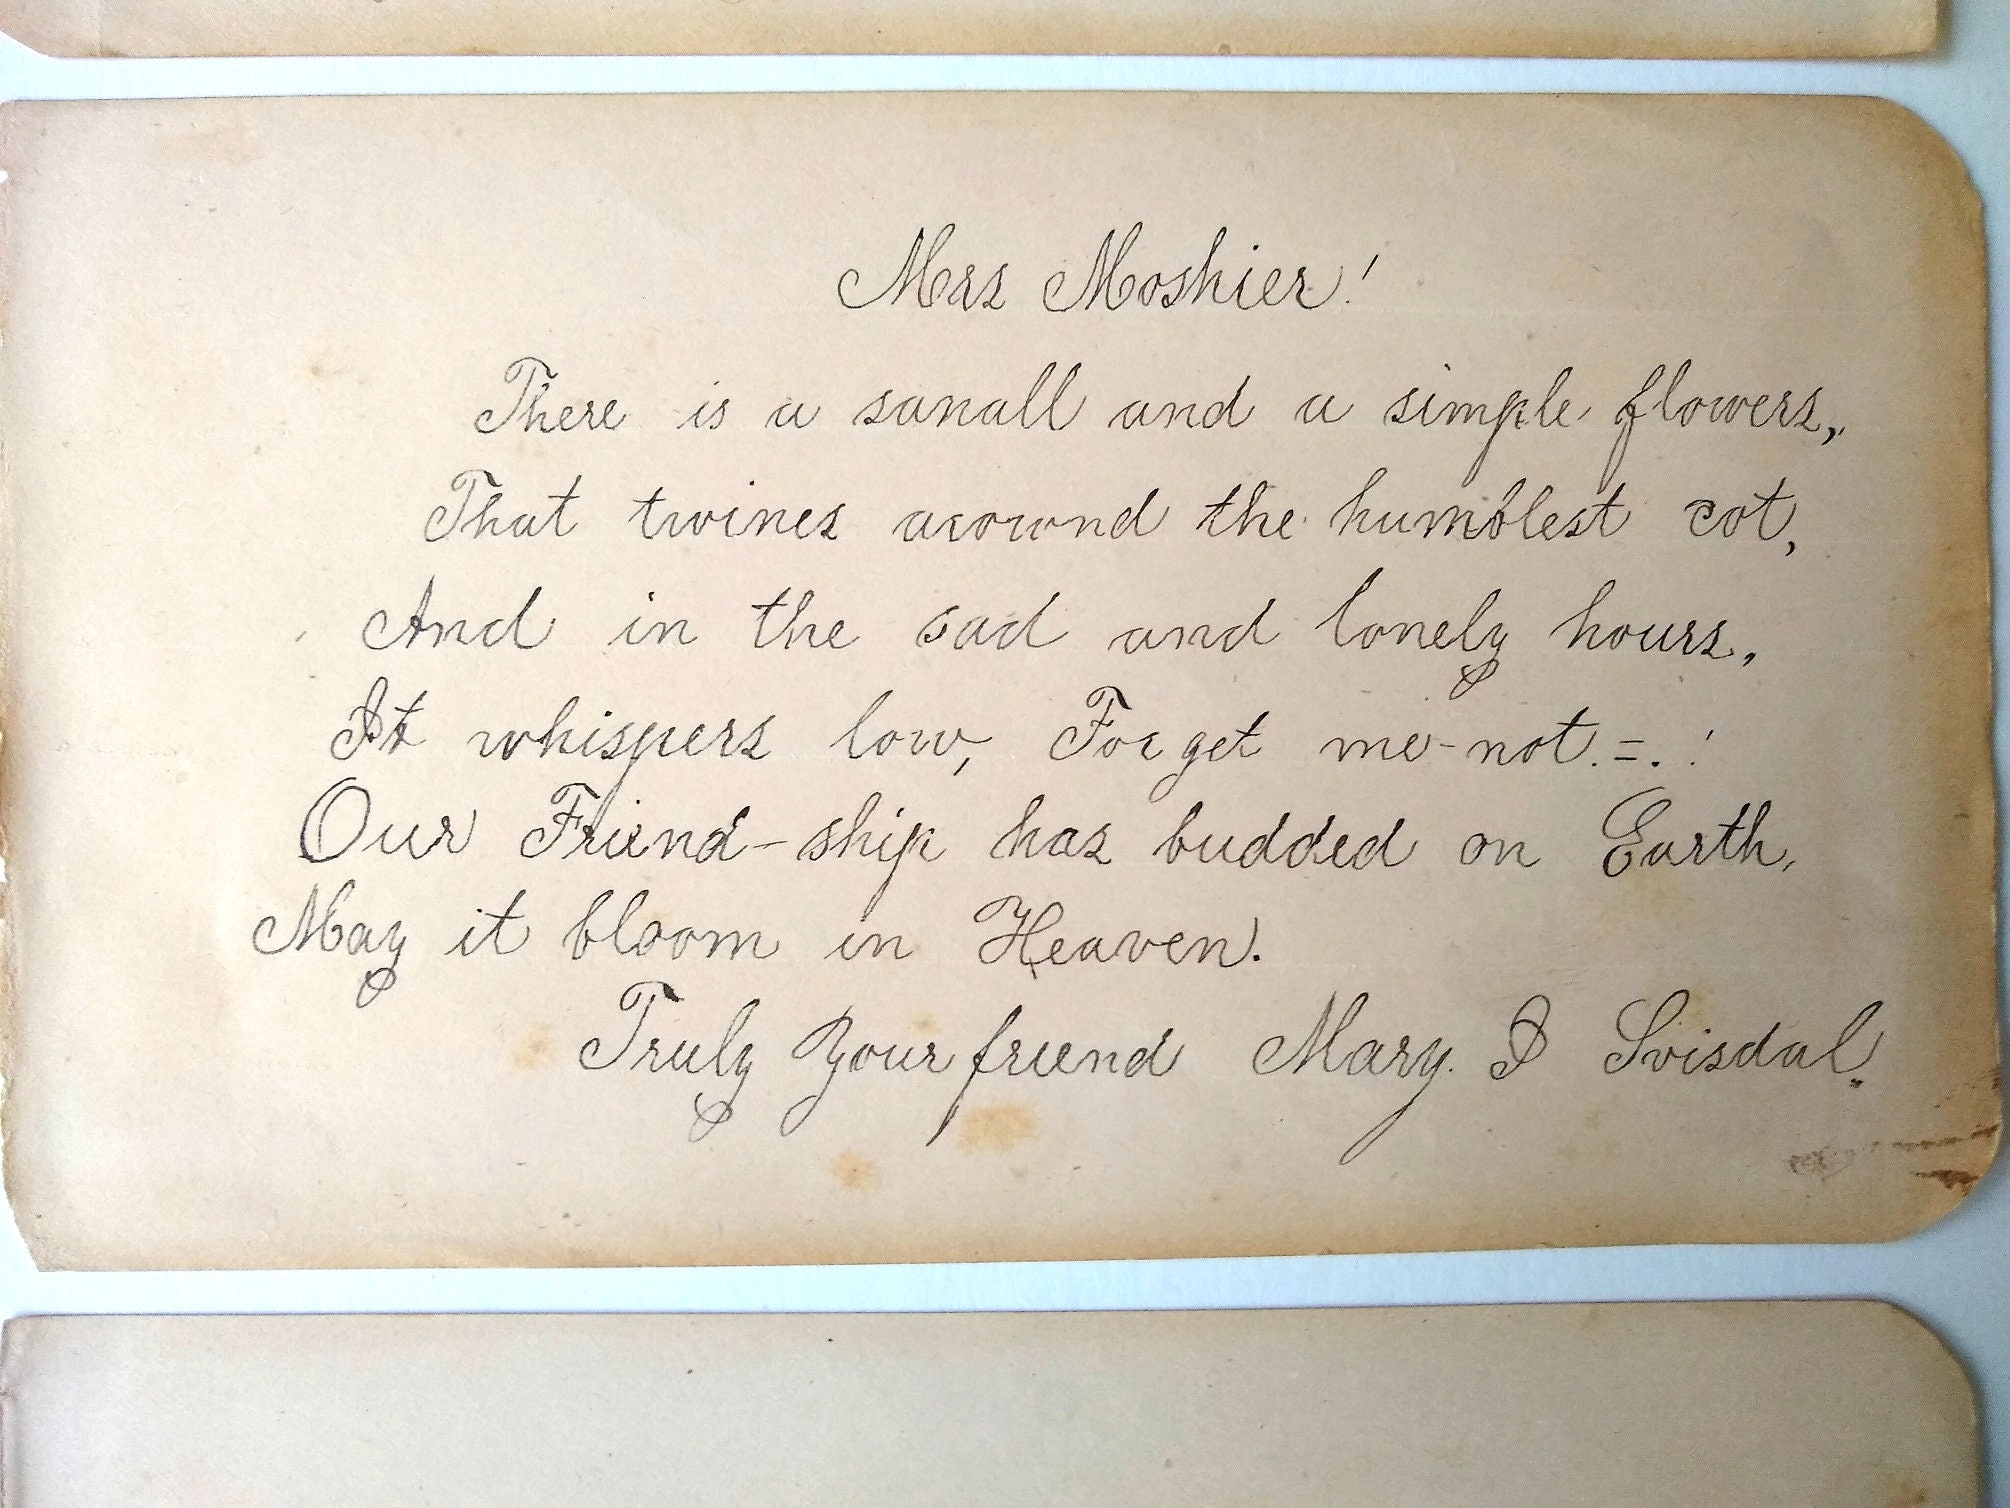 Mrs Moshier!
There is a sanall and a simple flowers,
That twines arownd the humblest cot,
And in the sad and lonely hours,
It whispers low, Forget me-not.=.!
Our Friend-ship has budded on Earth,
May it bloom in Heaven.
Truly Your friend Mary. I Svisdal.